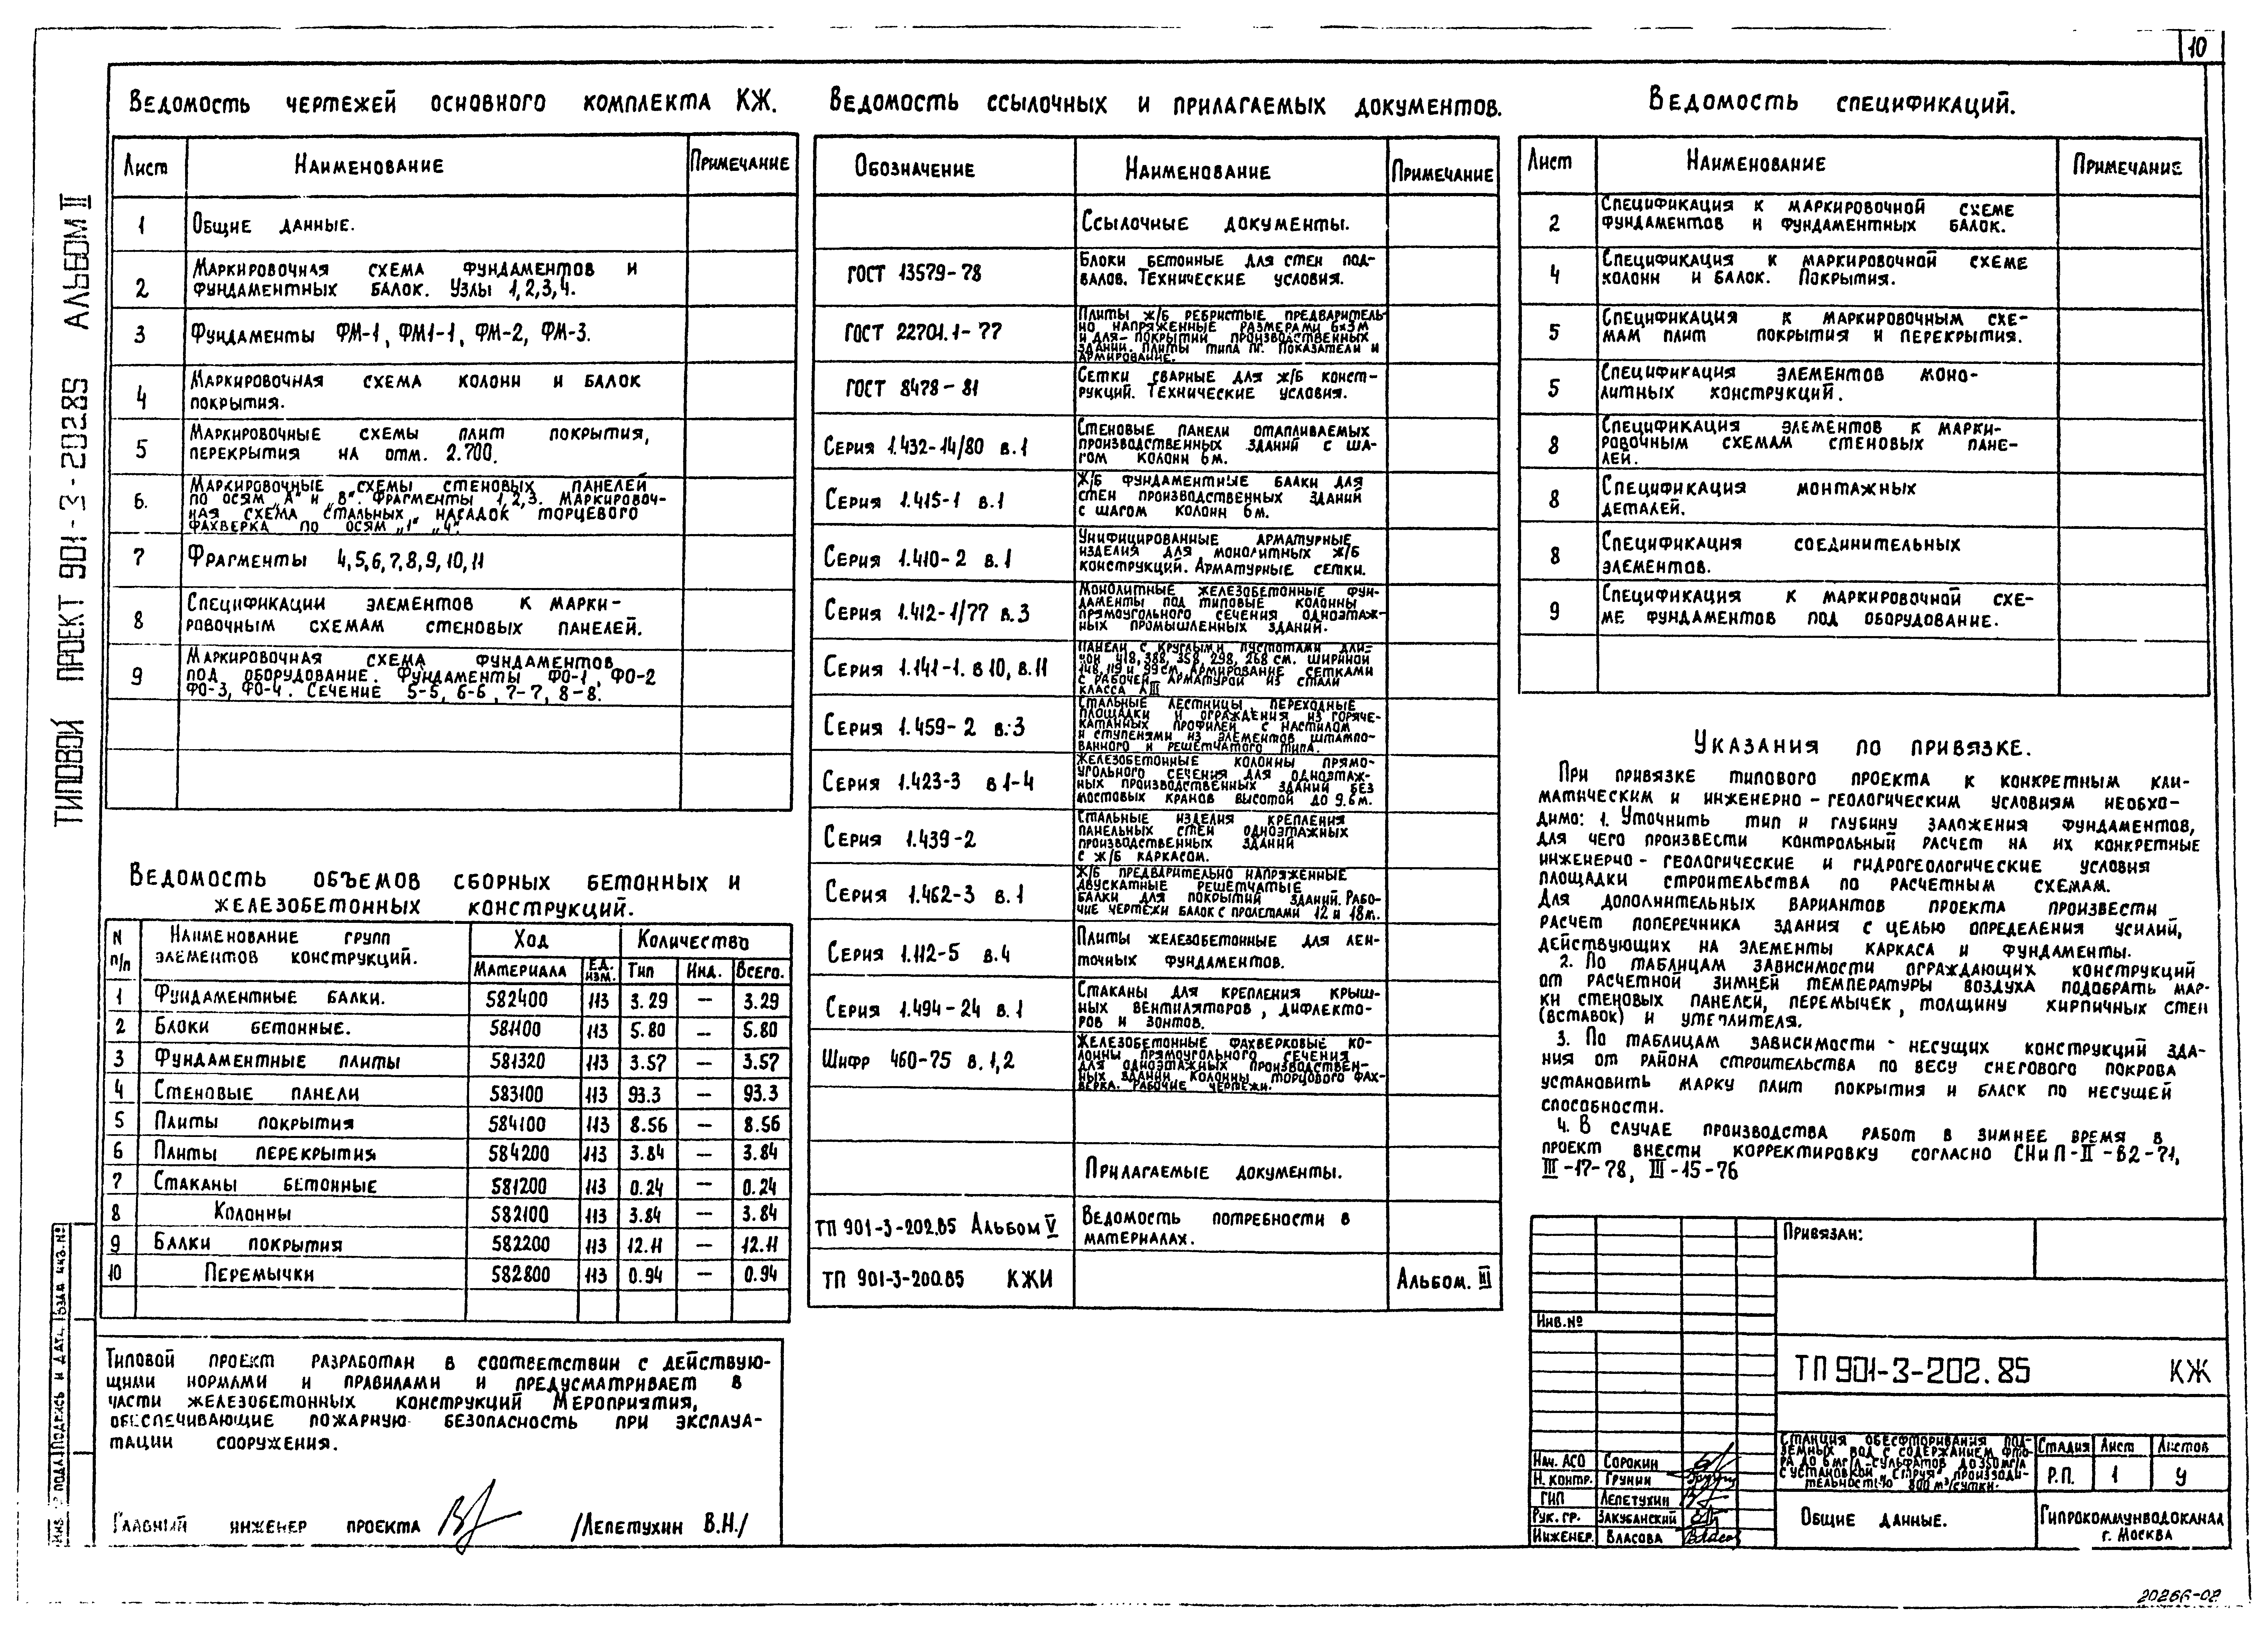 10
ТИПОВОЙ ПРОЕКТ 901-3-202.85 АЛЬБОМ II
Ведомость чертежей основного комплекта КЖ.
Лист Наименование Примечание
1 Общие данные.
2 Маркировочная схема фундаментов и
фундаментных балок. Узлы 1,2,3,4.
3 Фундаменты ФМ-1, ФМ1-1, ФМ-2, ФМ-3.
4 Маркировочная схема колонн и балок
покрытия.
5 Маркировочные схемы плит покрытия,
перекрытия на отм. 2.700.
6. Маркировочные схемы стеновых панелей
по осям „А" и „В". Фрагменты 1,2,3. Маркировоч-
ная схема стальных насадок торцевого
фахверка по осям „1" „4".
7 Фрагменты 4,5,6,7,8,9,10,11
8 Спецификации элементов к марки-
ровочным схемам стеновых панелей.
9 Маркировочная схема фундаментов
под оборудование. Фундаменты ФО-1, ФО-2
ФО-3, ФО-4. Сечение 5-5, 6-6, 7-7, 8-8.
Ведомость объемов сборных бетонных и
железобетонных конструкций.
N п/п Наименование групп элементов конструкций. Код Количество
Материала Ед. изм. Тип Инд. Всего.
1 Фундаментные балки. 582400 113 3.29 — 3.29
2 Блоки бетонные. 581100 113 5.80 — 5.80
3 Фундаментные плиты 581320 113 3.57 — 3.57
4 Стеновые панели 583100 113 93.3 — 93.3
5 Плиты покрытия 584100 113 8.56 — 8.56
6 Плиты перекрытия 584200 113 3.84 — 3.84
7 Стаканы бетонные 581200 113 0.24 — 0.24
8 Колонны 582100 113 3.84 — 3.84
9 Балки покрытия 582200 113 12.11 — 12.11
10 Перемычки 582800 113 0.94 — 0.94
Типовой проект разработан в соответствии с действую-
щими нормами и правилами и предусматривает в
части железобетонных конструкций мероприятия,
обеспечивающие пожарную безопасность при эксплуа-
тации сооружения.
Главный инженер проекта /Лепетухин В.Н./
Ведомость ссылочных и прилагаемых документов.
Обозначение Наименование Примечание
Ссылочные документы.
ГОСТ 13579-78 Блоки бетонные для стен под-
валов. Технические условия.
ГОСТ 22701.1-77 Плиты ж/б ребристые предваритель-
но напряженные размерами 6х3м
и для покрытий производственных
зданий. Плиты типа ПГ. Показатели и
армирование.
ГОСТ 8478-81 Сетки сварные для ж/б конст-
рукций. Технические условия.
Серия 1.432-14/80 в.1 Стеновые панели отапливаемых
производственных зданий с ша-
гом колонн 6м.
Серия 1.415-1 в.1 Ж/б фундаментные балки для
стен производственных зданий
с шагом колонн 6м.
Серия 1.410-2 в.1 Унифицированные арматурные
изделия для монолитных ж/б
конструкций. Арматурные сетки.
Серия 1.412-1/77 в.3 Монолитные железобетонные фун-
даменты под типовые колонны
прямоугольного сечения одноэтаж-
ных промышленных зданий.
Серия 1.141-1. в 10, в.11 Панели с круглыми пустотами дли-
ной 418, 388, 358, 298, 268 см. шириной
148, 119 и 99 см. Армирование сетками
с рабочей арматурой из стали
класса А III
Серия 1.459-2 в.3 Стальные лестницы, переходные
площадки и ограждения из горяче-
катанных профилей с настилом
и ступенями из элементов штампо-
ванного и решетчатого типа.
Серия 1.423-3 в 1-4 Железобетонные колонны прямо-
угольного сечения для одноэтаж-
ных производственных зданий без
мостовых кранов высотой до 9.6м.
Серия 1.439-2 Стальные изделия крепления
панельных стен одноэтажных
производственных зданий
с ж/б каркасом.
Серия 1.462-3 в.1 Ж/б предварительно напряженные
двускатные решетчатые
балки для покрытий зданий. Рабо-
чие чертежи балок с пролетами 12 и 18м.
Серия 1.112-5 в.4 Плиты железобетонные для лен-
точных фундаментов.
Серия 1.494-24 в.1 Стаканы для крепления крыш-
ных вентиляторов, дифлекто-
ров и зонтов.
Шифр 460-75 в.1,2 Железобетонные фахверковые ко-
лонны прямоугольного сечения
для одноэтажных производствен-
ных зданий. Колонны торцового фах-
верка. Рабочие чертежи.
Прилагаемые документы.
ТП 901-3-202.85 Альбом V Ведомость потребности в
материалах.
ТП 901-3-200.85 КЖИ Альбом. III
Ведомость спецификаций.
Лист Наименование Примечание
2 Спецификация к маркировочной схеме
фундаментов и фундаментных балок.
4 Спецификация к маркировочной схеме
колонн и балок. Покрытия.
5 Спецификация к маркировочным схе-
мам плит покрытия и перекрытия.
5 Спецификация элементов моно-
литных конструкций.
8 Спецификация элементов к марки-
ровочным схемам стеновых пане-
лей.
8 Спецификация монтажных
деталей.
8 Спецификация соединительных
элементов.
9 Спецификация к маркировочной схе-
ме фундаментов под оборудование.
Указания по привязке.
При привязке типового проекта к конкретным кли-
матическим и инженерно-геологическим условиям необхо-
димо: 1. Уточнить тип и глубину заложения фундаментов,
для чего произвести контрольный расчет на их конкретные
инженерно-геологические и гидрогеологические условия
площадки строительства по расчетным схемам.
Для дополнительных вариантов проекта произвести
расчет поперечника здания с целью определения усилий,
действующих на элементы каркаса и фундаменты.
2. По таблицам зависимости ограждающих конструкций
от расчетной зимней температуры воздуха подобрать мар-
ки стеновых панелей, перемычек, толщину кирпичных стен
(вставок) и утеплителя.
3. По таблицам зависимости - несущих конструкций зда-
ния от района строительства по весу снегового покрова
установить марку плит покрытия и балок по несущей
способности.
4. В случае производства работ в зимнее время в
проект внести корректировку согласно СНиП-II-В2-71,
III-17-78, III-15-76
Привязан:
Инв.№
ТП 901-3-202.85 КЖ
Станция обесфторивания под-
земных вод с содержанием фто-
ра до 6 мг/л сульфатов до 350 мг/л
с установкой „Струя", производи-
тельностью 800 м³/сутки.
Стадия Лист Листов
Р.П. 1 9
Нач. АСО Сорокин
Н. контр. Грунин
ГИП Лепетухин
Рук. гр. Закубанский
Инженер. Власова
Общие данные.
Гипрокоммунводоканал
г. Москва
Инв. № подл. Подпись и дата Взам. инв. №
20266-02